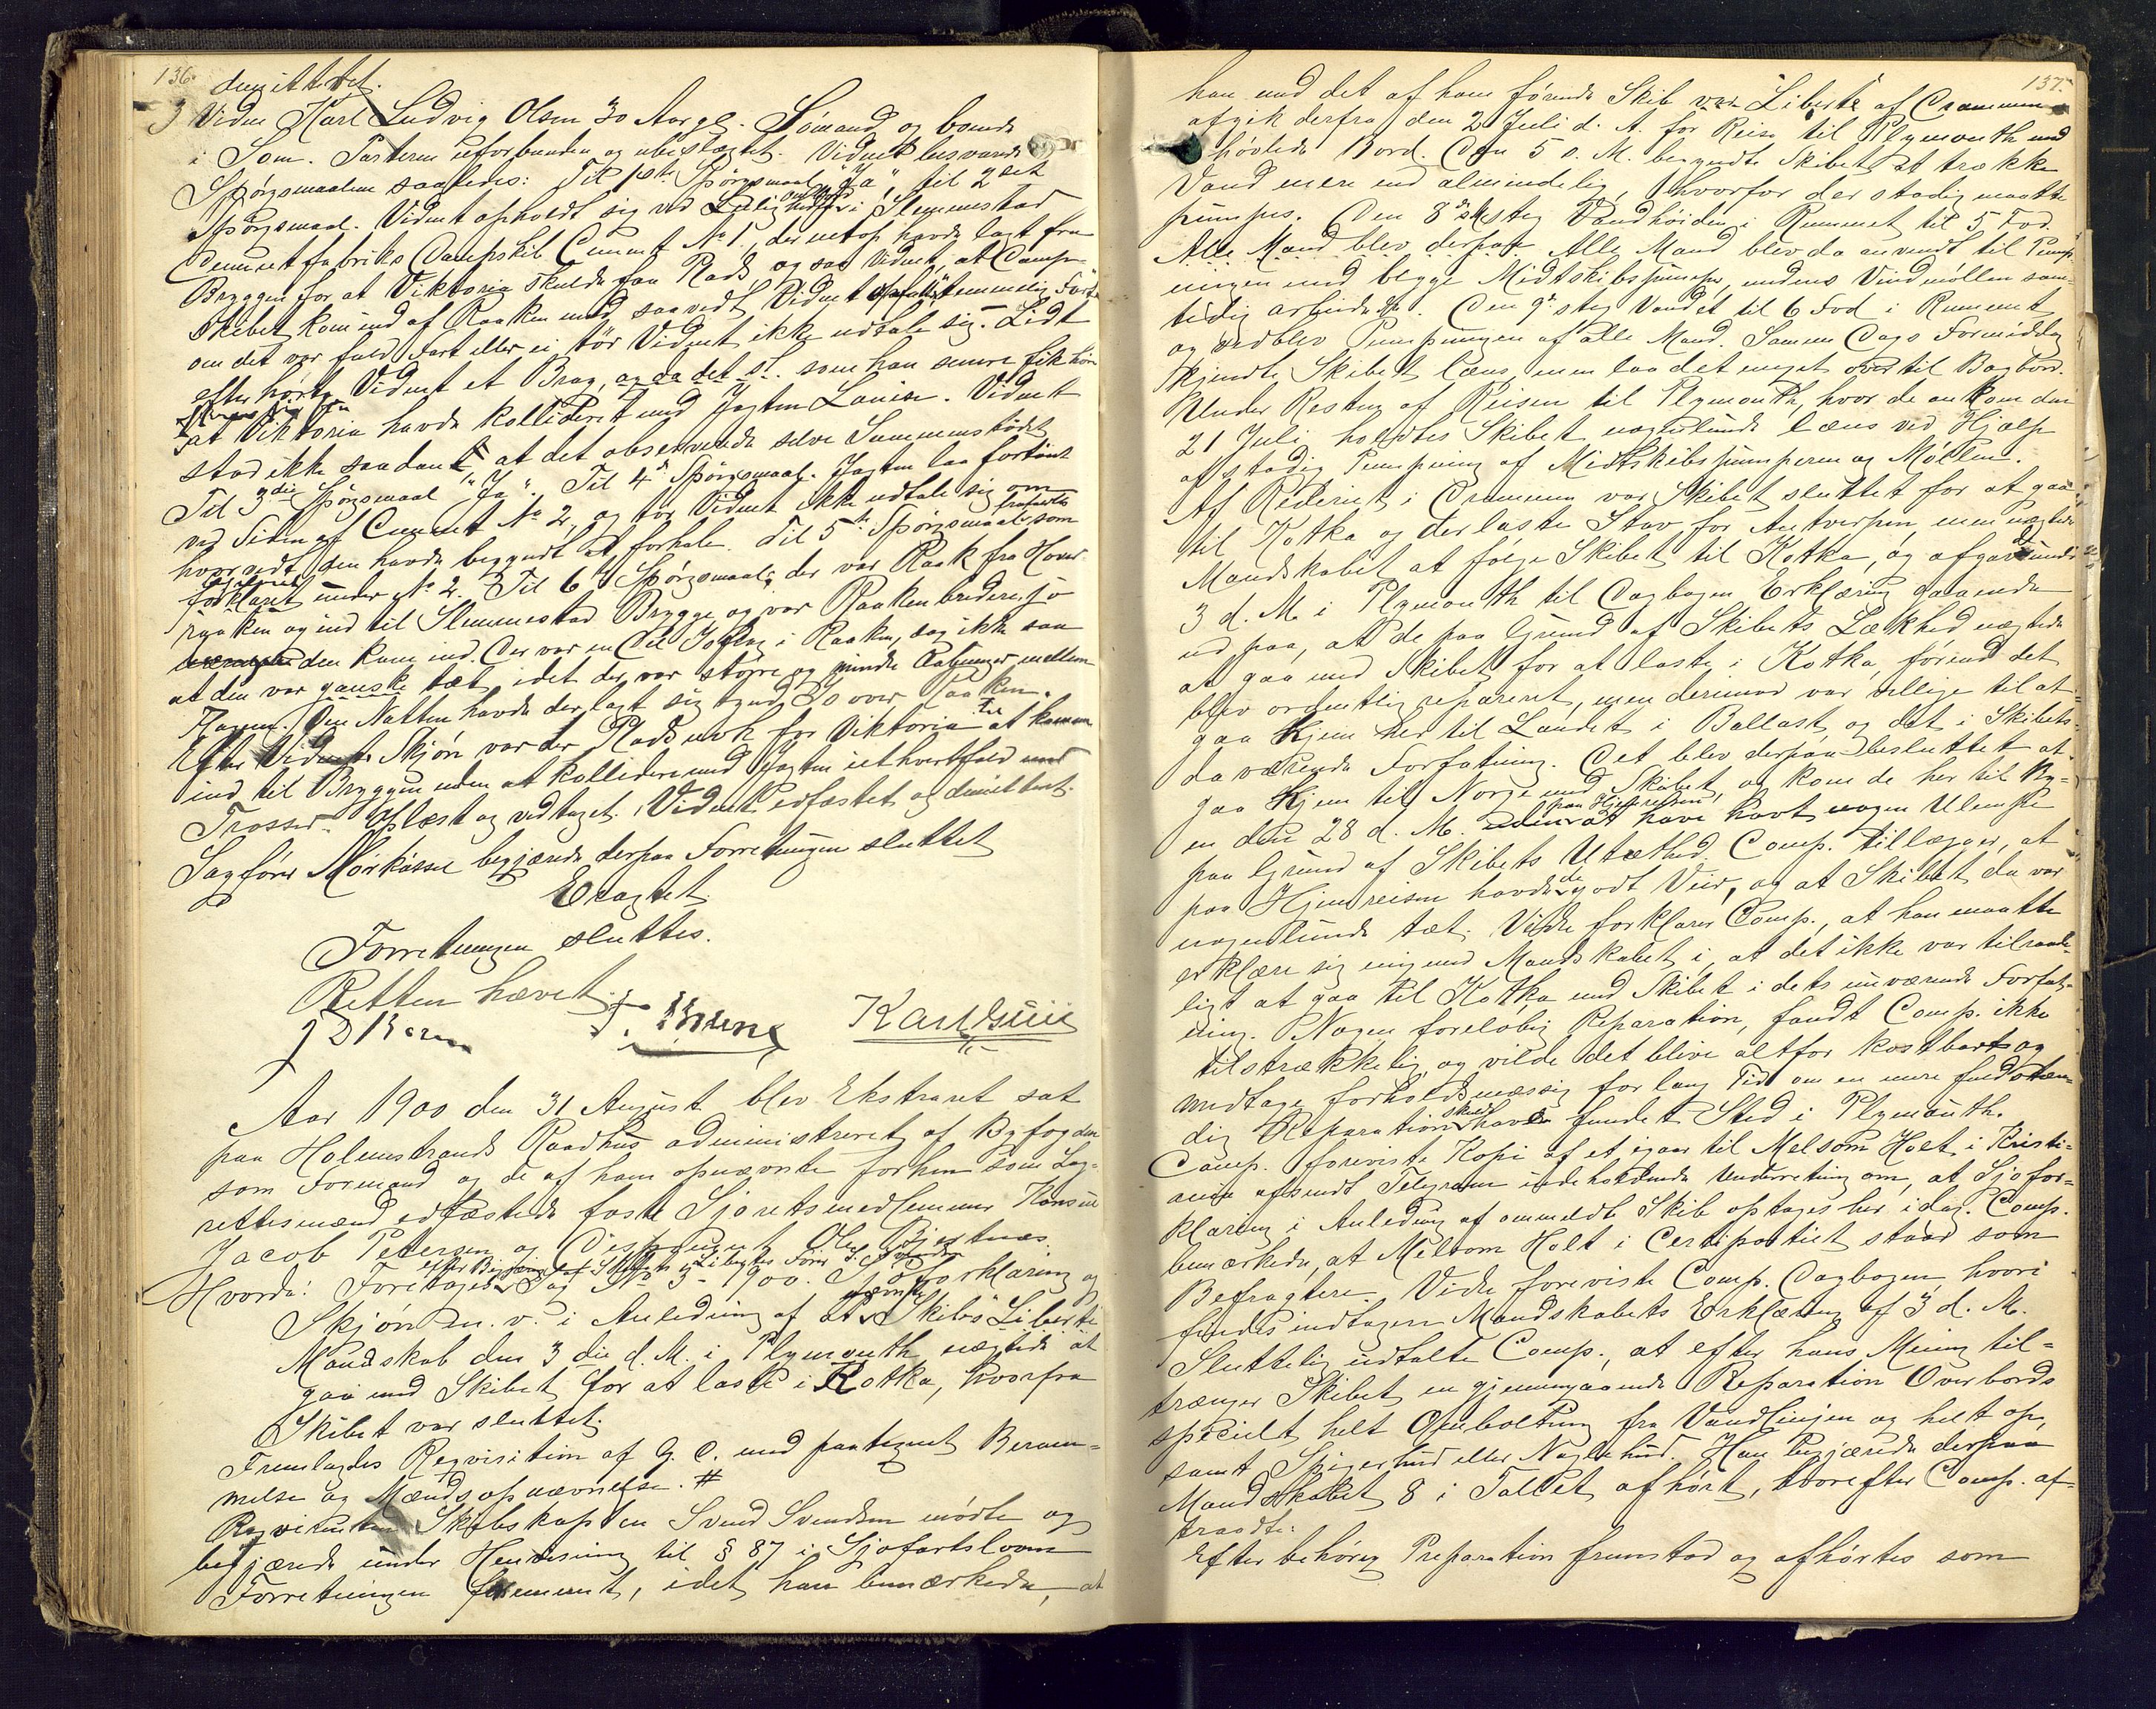 136.
demitteret.
3 Vidne Karl Ludvig Olsen 30 Aar gl. Sömand og boende
i Son. Parterne uforbunden og ubeslægtet. Vidnet besvarede
Spörgsmaalene saaledes: Til 1ste Spörgsmaal "Ja", til 2det
Spörgsmaal. Vidnet opholdt sig ved i Slemmestad
Cementfabriks Dampskib Cement No 1, der netop havde lagt fra
Bryggen for at Viktoria skulde faa Plads, og saa Vidnet, at Damp-
skibet kom ind af Raaken med, saavidt Vidnet temmelig Fart,
om det var fuld Fart eller ei tör Vidnet ikke udtale sig. Lidt
efter hörte Vidnet et Brag, og da det sl. som han senere fik höre
at Viktoria havde kollideret med Jagten Louise. Vidnet
stod ikke saadant, at det observerede selve Sammenstödet
Til 3die Spörgsmaal "Ja". Til 4de Spörgsmaal. Jagten laa fortöiet
ved Siden af Cement No 2, og tör Vidnet ikke udtale sig om
hvorvidt den havde begyndt at forhale. Til 5te Spörgsmaal som
forklaret under No 2. Til 6te Spörgsmaal, der var Raak fra Hoved-
raaken og ind til Slemmestad Brygge og var Raaken bredere jo
den kom ind. Der var en Del Isflag i Raaken, dog ikke saa
at den var ganske tæt, idet der var större og mindre Aabninger mellem
Flagene. Om Natten havde der lagt sig tynd Is over Raaken.
Efter Vidnets Skjön var der Plads nok for Viktoria til at komme
ind til Bryggen uden at kollidere med Jagten i ethvertfald med
Trosser. Oplæst og vedtaget. Vidnet edfæstet og demitteret.
Sagförer Mörkåssen begjærede derpaa Forretningen sluttet
Eragtet
Forretningen sluttes.
Retten hævet.
Aar 1900 den 31 August blev Ekstraret sat
paa Holmestrands Raadhus administreret af Byfogden
som Formand og de af ham opnævnte forhen som Lag-
rettesmænd edfæstede faste Sjöretsmedlemmer Konsul
Jacob Petersen og Disponent Ole Bjertnæs.
Hvorda: Foretoges Sag No 3 - 1900. Sjöforklaring og
Skjön m. v. i Anledning af at Skibs Liberte
Mandskab den 3die d. M. i Plymouth nægtede at
gaa med Skibet for at laste i Kotka, hvorfra
Skibet var sluttet.
Fremlagdes Reqvisition af G. D. med paategnet Beram-
melse og Mændsopnævnelse. #
Reqvirenten Skibskaptein Svend Svendsen mödte og
begjærede under Henvisning til § 87 i Sjöfartsloven
Forretningen fremmet, idet han bemærkede, at
137.
han med det af ham förende Skib Liberte af Drammen
afgik derfra den 2 Juli d. A. for Reise til Plymouth med
hövlede Bord. Den 5 s. M. begyndte Skibet at trække
Vand mere end almindelig, hvorfor der stadig maatte
pumpes. Den 8de steg Vandhöiden i Rummet til 5 Fod.
Alle Mand blev derpaa Alle Mand blev da anvendt til Pump-
ningen med begge Midtskibspumper, medens Vindmöllen sam-
tidig arbeidede. Den 9de steg Vandet til 6 Fod i Rummet
og vedblev Pumpningen af alle Mand. Samme Dags Formiddag
kjendtes Skibet læns, men laa det meget over til Bagbord.
Under Resten af Reisen til Plymouth, hvor de ankom den
21 Juli, holdtes Skibet nogenlunde læns ved Hjælp
af stadig Pumpning af Midtskibspumperne og Möllen.
Af Rederiet i Drammen var Skibet sluttet for at gaa
til Kotka og der laste Stav for Antverpen, men nægtede
Mandskabet at fölge Skibet til Kotka, og afgav under
3 d. M. i Plymouth til Dagbogen Erklæring gaaende
ud paa, at de paa Grund af Skibets Lækhed nægtede
at gaa med Skibet for at laste i Kotka, förend det
blev ordentlig repareret, men derimod var villige til at
gaa Hjem her til Landet i Ballast, og det i Skibets
daværende Forfatning. Det blev derpaa besluttet at
gaa Hjem til Norge med Skibet, og kom de her til By-
en den 28 d. M. uden at have havt nogen Ulempe
paa Grund af Skibets Utæthed. Comp. tillægger, at
paa Hjemreisen havde de godt Veir, og at Skibet da var
nogenlunde tæt. Videre forklarer Comp., at han maatte
erklære sig enig med Mandskabet i, at det ikke var tilraade-
ligt at gaa til Kotka med Skibet i dets nuværende Forfat-
ning. Nogen forelöbig Reparation, fandt Comp. ikke
tilstrækkelig, og vilde det blive altfor kostbart og
medtage forholdsmæssig for lang Tid om en mere fuldstæn-
dig Reparation skulde have fundet Sted i Plymouth.
Comp. foreviste Kopi af et igaar til Melsom Holt i Kristi-
ania afsendt Telegram indeholdende Underretning om, at Sjöfor-
klaring i Anledning af ommeldte Skib optages her idag. Comp.
bemærkede, at Melsom Holt i Certepartiet staar som
Befragtere. Videre foreviste Comp. Dagbogen, hvori
findes indtagen Mandskabets Erklæring af 3 d. M.
Sluttelig udtalte Comp., at efter hans Mening til-
trænger Skibet en gjennemgaaende Reparation Overbords
specielt helt Ombolting fra Vandlinjen og helt op,
samt Spigerhud eller Naglehud. Han begjærede derpaa
Mandskabet 8 i Tallet afhört, hvorefter Comp. af-
traadte.
Efter behörig Preparation fremstod og afhörtes som